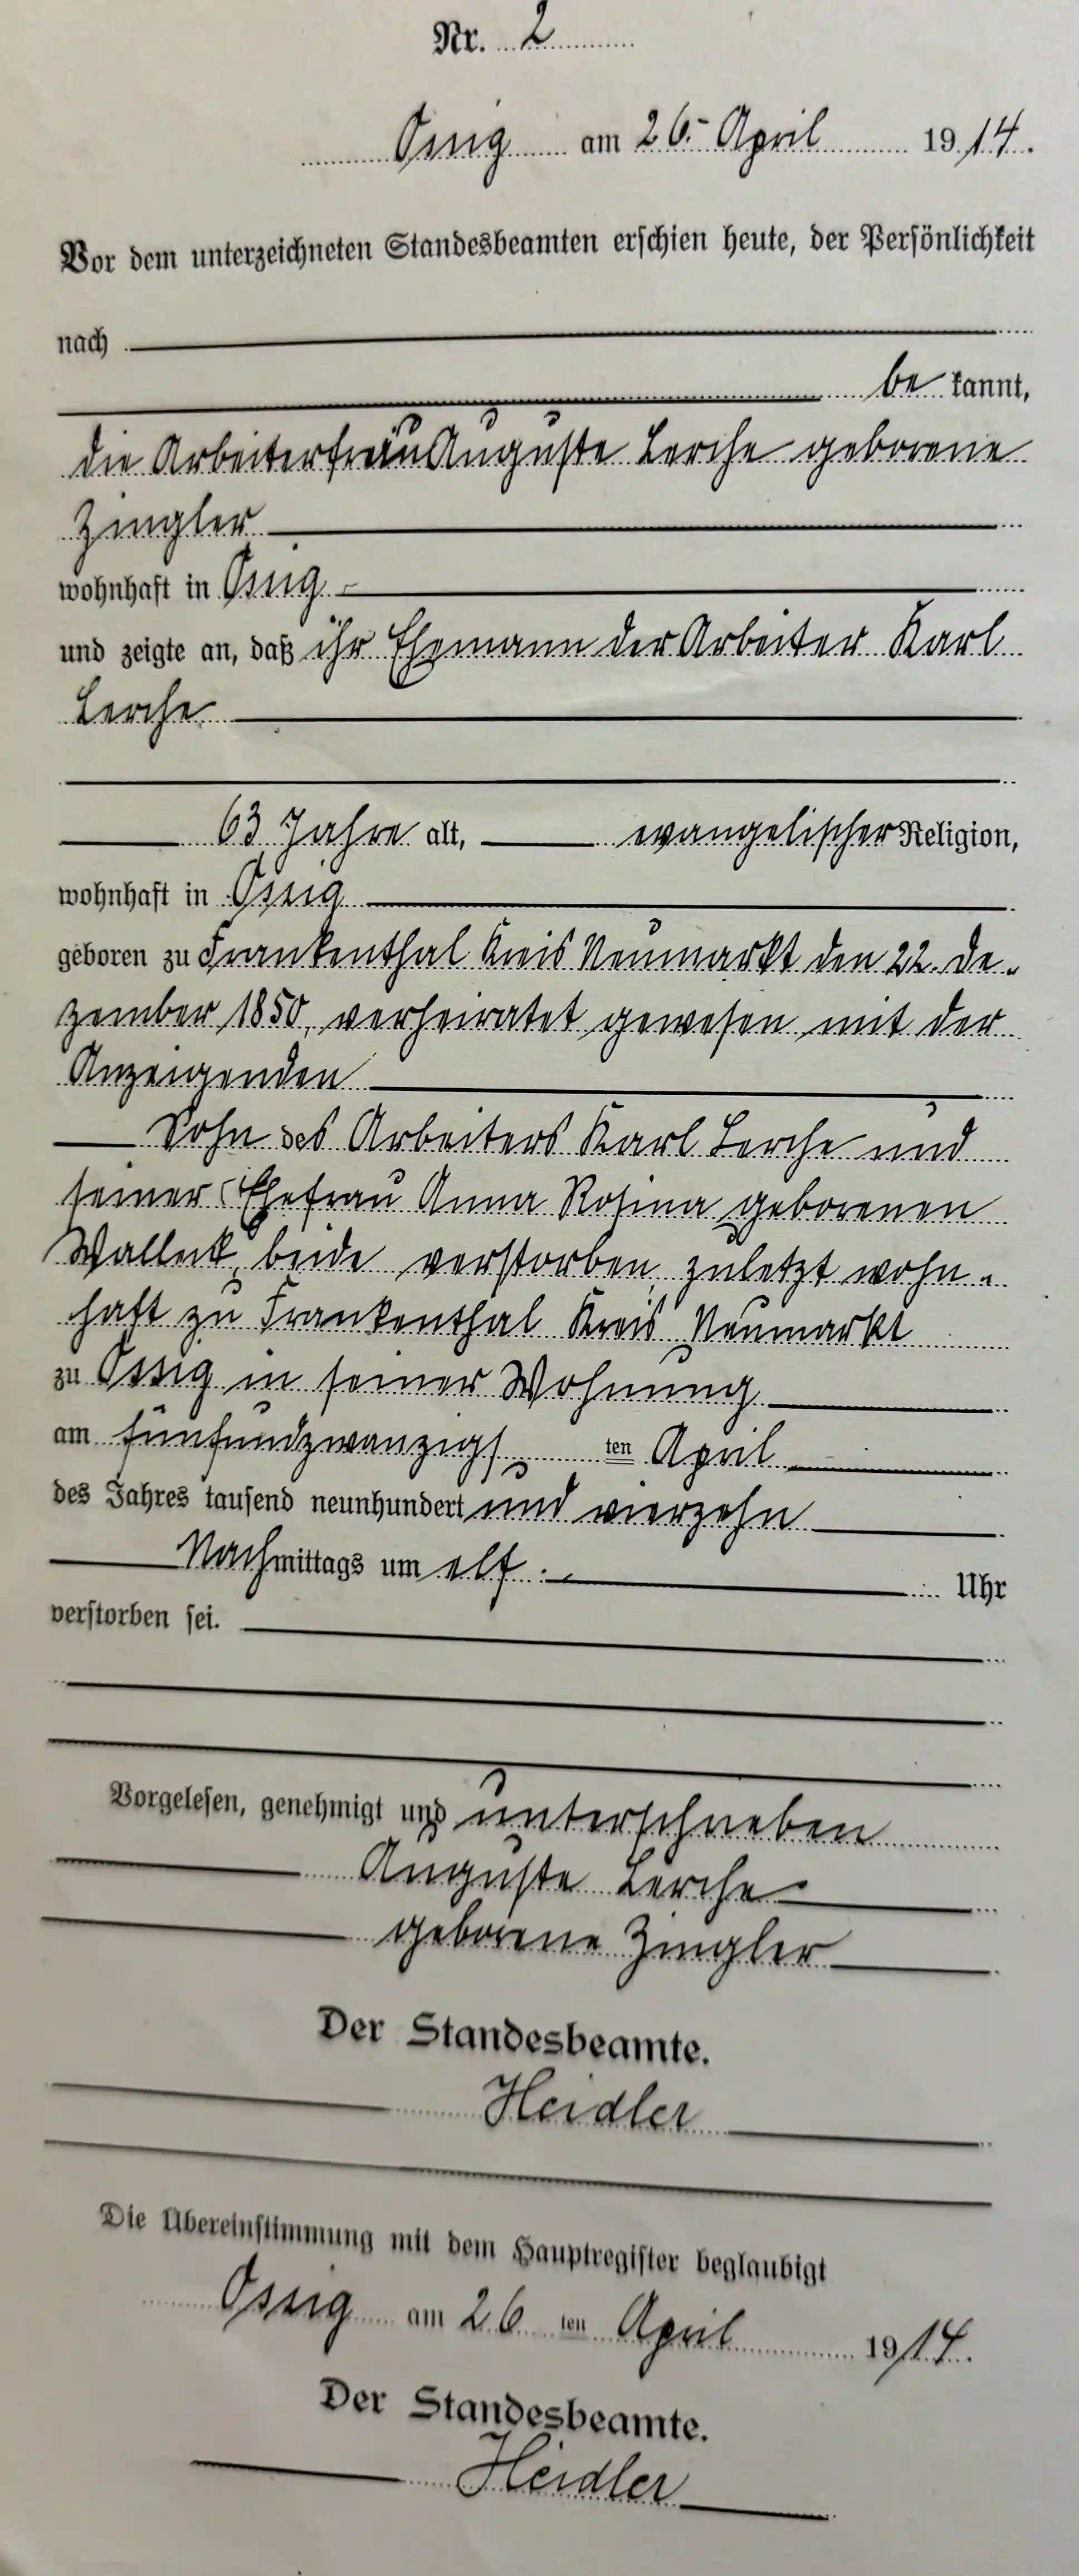 Nr. 2
Ossig am 26. April 1914.
Vor dem unterzeichneten Standesbeamten erschien heute, der Persönlichkeit
nach
be kannt,
die Arbeiterfrau Auguste Lerche geborene
Zingler
wohnhaft in Ossig
und zeigte an, daß ihr Ehemann der Arbeiter Karl
Lerche
63 Jahre alt, evangelischer Religion,
wohnhaft in Ossig
geboren zu Frankenthal Kreis Neumarkt den 22. De-
zember 1850, verheiratet gewesen mit der
Anzeigenden
Sohn des Arbeiters Karl Lerche und
seiner Ehefrau Anna Rosina geborenen
Walleck, beide verstorben, zuletzt wohn-
haft zu Frankenthal Kreis Neumarkt
zu Ossig in seiner Wohnung
am fünfundzwanzigs ten April
des Jahres tausend neunhundert und vierzehn
Nachmittags um elf Uhr
verstorben sei.
Vorgelesen, genehmigt und unterschrieben
Auguste Lerche
geborene Zingler
Der Standesbeamte.
Heidler
Die Übereinstimmung mit dem Hauptregister beglaubigt
Ossig am 26 ten April 1914.
Der Standesbeamte.
Heidler